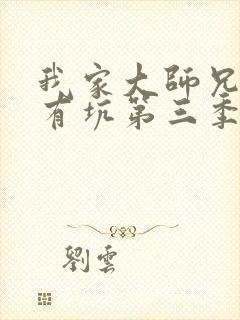 我家大師兄
有坑第三季
劉雲